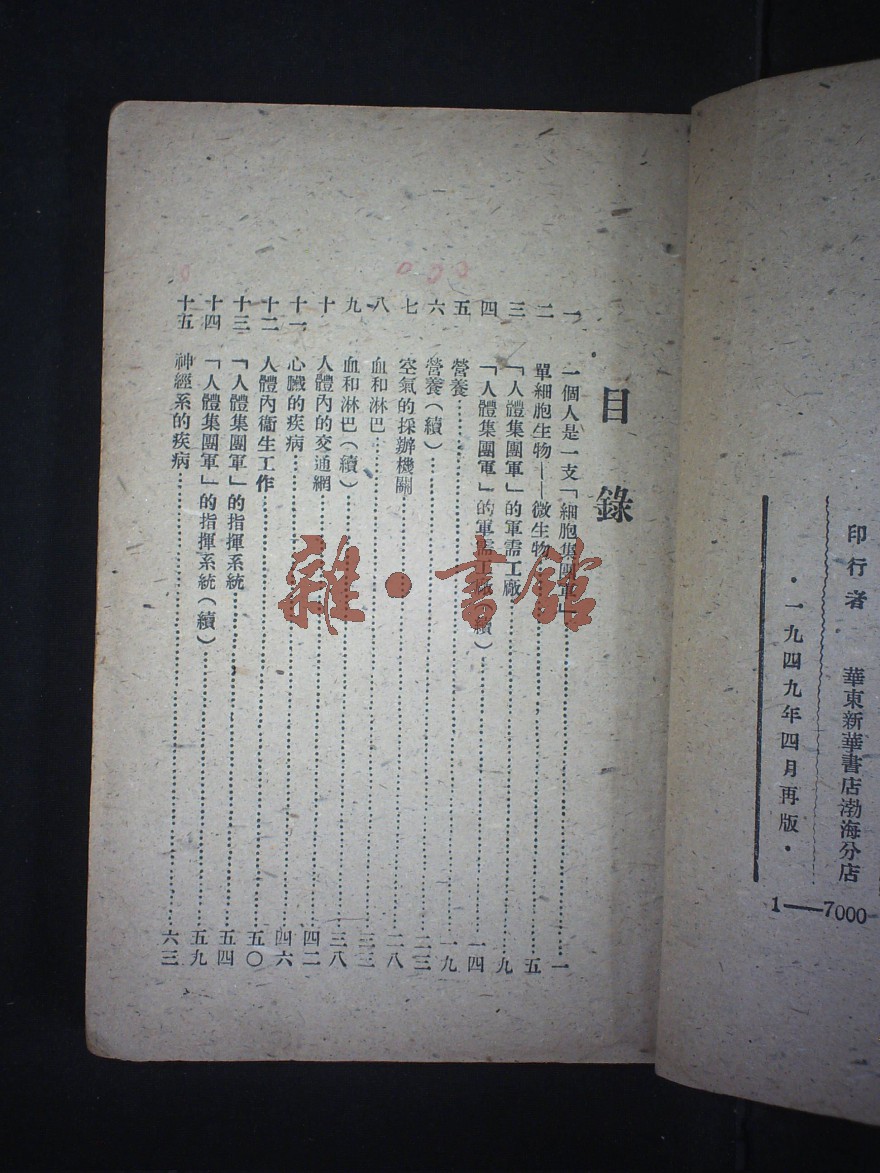 印行者　華東新華書店渤海分店
·一九四九年四月再版·
1——7000
目錄
一　一個人是一支「細胞集團軍」……一
二　單細胞生物——微生物……五
三　「人體集團軍」的軍需工廠……九
四　「人體集團軍」的軍需工廠(續)……一四
五　營養……一九
六　營養(續)……二三
七　空氣的採辦機關……二八
八　血和淋巴……三三
九　血和淋巴(續)……三八
十　人體內的交通網……四二
十一　心臟的疾病……四六
十二　人體內衞生工作……五〇
十三　「人體集團軍」的指揮系統……五四
十四　「人體集團軍」的指揮系統(續)……五九
十五　神經系的疾病……六三
雜·書館